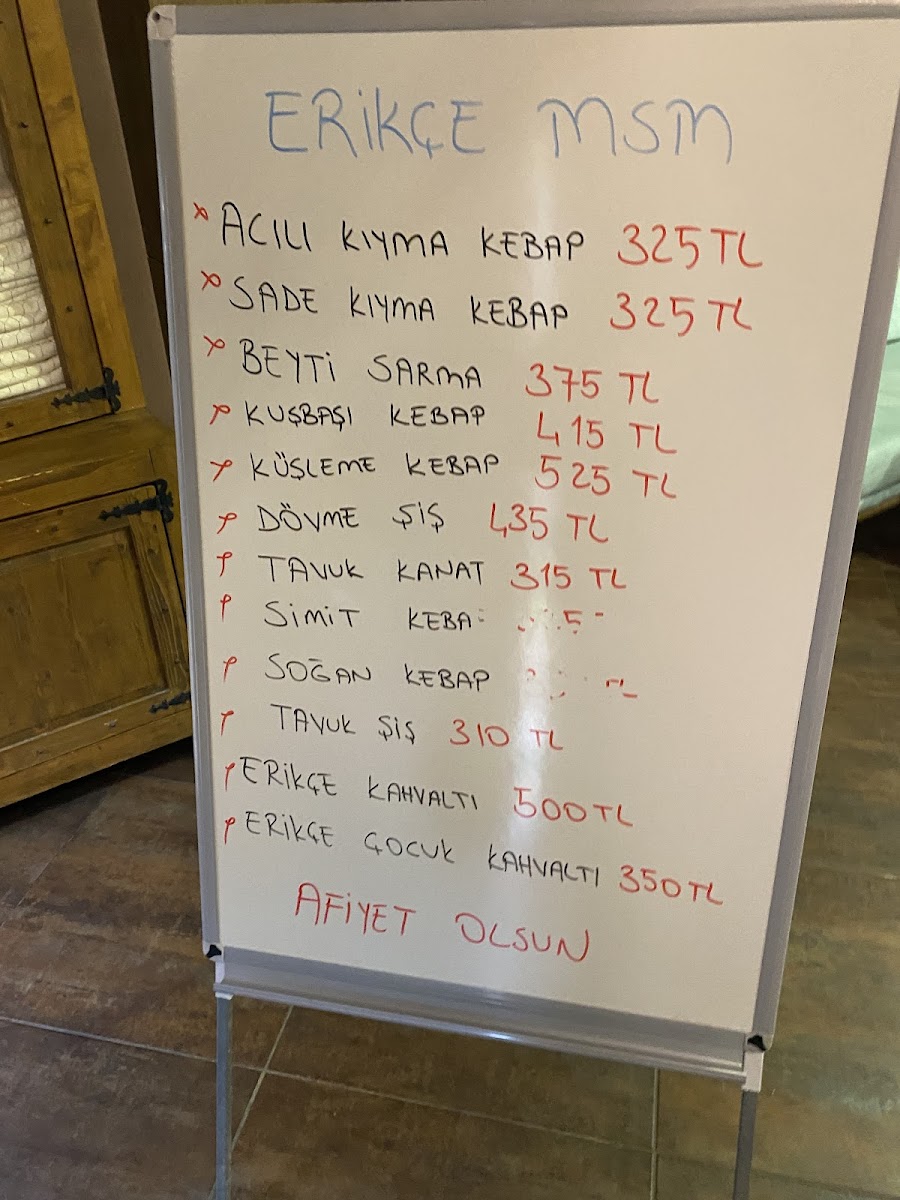 ERİKÇE MSM
ACILI KIYMA KEBAP 325 TL
SADE KIYMA KEBAP 325 TL
BEYTİ SARMA 375 TL
KUŞBAŞI KEBAP 415 TL
KÜŞLEME KEBAP 525 TL
DÖVME ŞİŞ 435 TL
TAVUK KANAT 315 TL
SİMİT
SOĞAN KEBAP TL
TAVUK ŞİŞ 310 TL
ERİKÇE KAHVALTI 500 TL
ERİKÇE ÇOCUK KAHVALTI 350 TL
AFİYET OLSUN